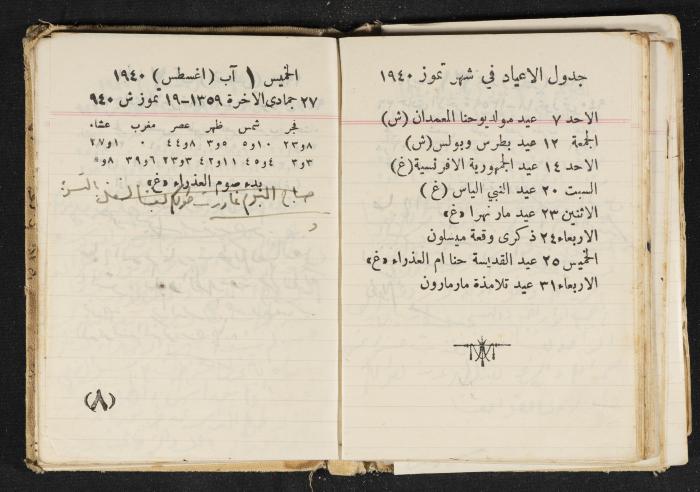 جدول الاعياد في شهر تموز ١٩٤٠
الاحد ٧ عيد مولد يوحنا المعمدان (ش)
الجمعة ١٢ عيد بطرس وبولس (ش)
الاحد ١٤ عيد الجمهورية الافرنسية (غ)
السبت ٢٠ عيد النبي الياس (غ)
الاثنين ٢٣ عيد مار نهرا «غ»
الاربعاء ٢٤ ذكرى وقعة ميسلون
الخميس ٢٥ عيد القديسة حنا ام العذراء «غ»
الاربعاء ٣١ عيد تلامذة مارمارون
الخميس ١ آب (اغسطس) ١٩٤٠
٢٧ جمادى الآخرة ١٣٥٩-١٩ تموز ش ٩٤٠
فجر شمس ظهر عصر مغرب عشاء
٨و٢٣ ١٠و٥ ٥و٣ ٨و٤٤ ٠ ١و٢٧
٣و٣ ٤و٥٠ ١١و٤٢ ٣و٢٣ ٦و٣٩ ٨و٥
بدء صوم العذراء «غ»
صباح اليوم
(٨)